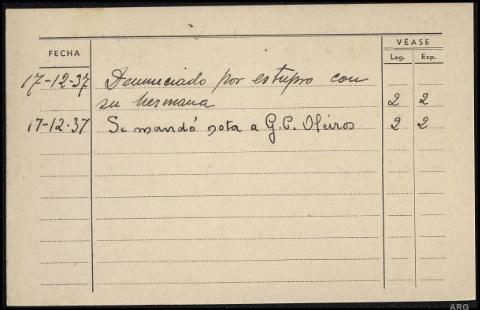 FECHA VÉASE
Leg. Exp.
17-12-37 Denunciado por estupro con
su hermana 2 2
17-12-37 Se mandó nota a G.C. Oleiros 2 2
ARG